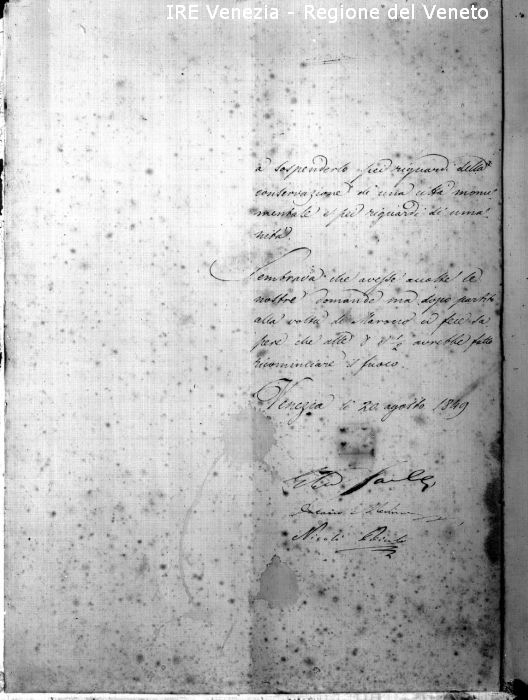 IRE Venezia - Regione del Veneto
a sospenderlo pei riguardi della
conservazione di una città monu
mentale e pei riguardi di uma
nità.
Sembrava che avesse accolte le
nostre domande ma dopo partiti
alla volta di Marocco ci fece sa
pere che alle 7 1/2 avrebbe fatto
ricominciare il fuoco.
Venezia li 20 agosto 1849
Nicolò